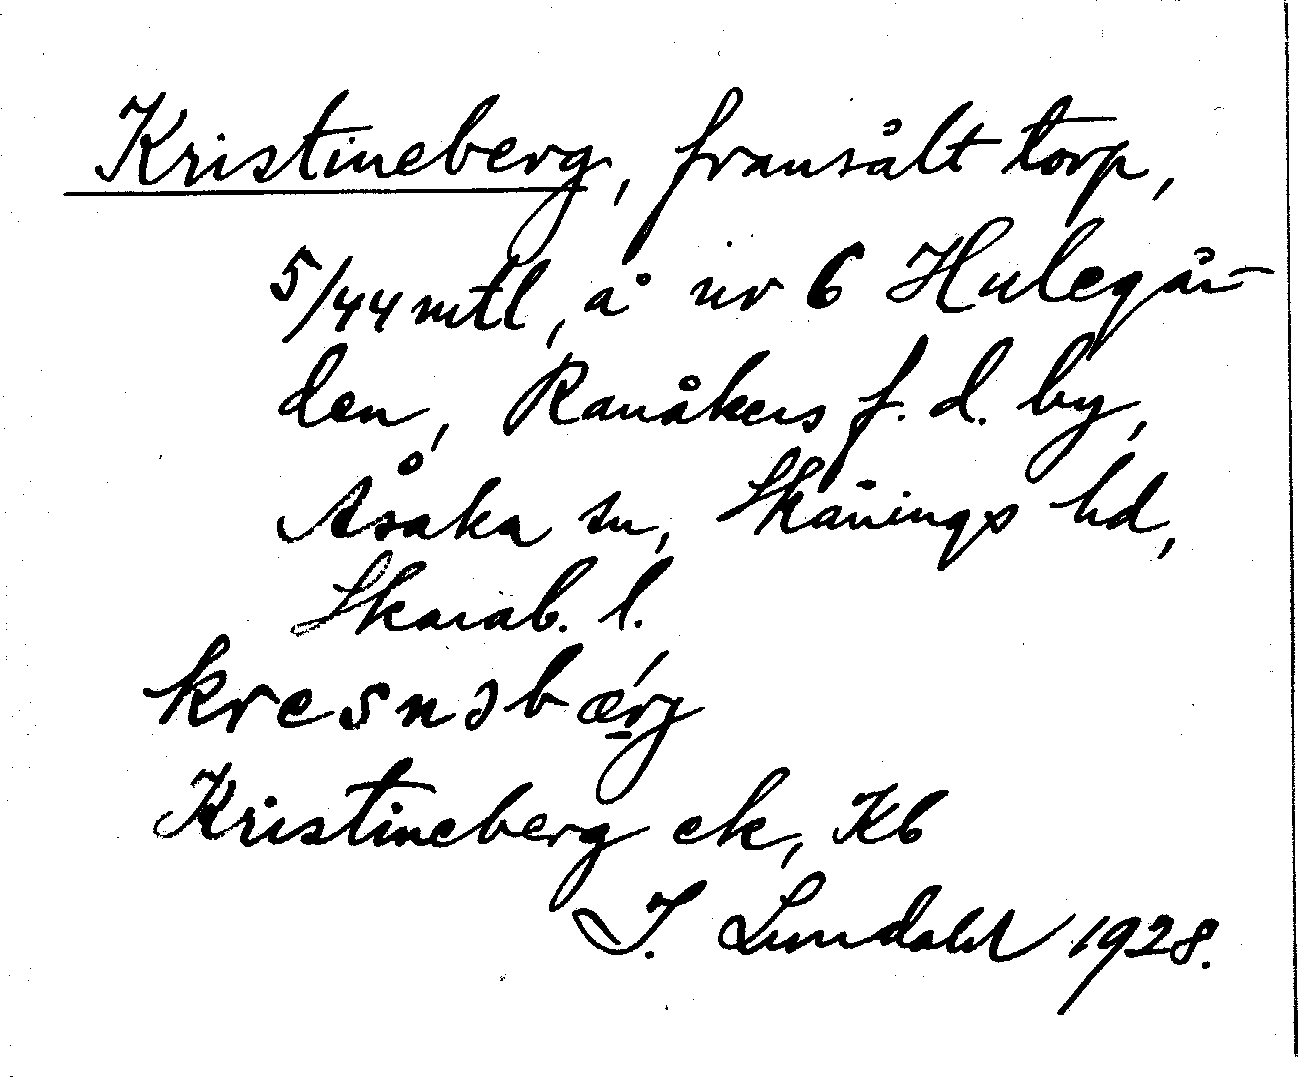 Kristineberg, fransålt torp,
5/44 mtl, å nr 6 Hulegår-
den, Ranåkers f. d. by,
Åsaka sn, Skånings hd,
Skarab. l.
kresnəbærj
Kristineberg ek, Kb
I. Lundahl 1928.